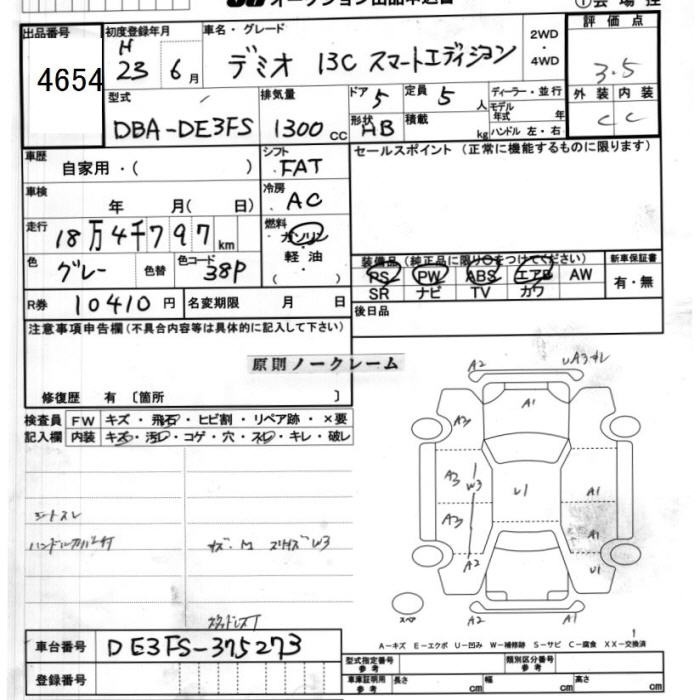 オークション出品申込書
① 会場控
出品番号
4654
初度登録年月
H 23 6月
車名・グレード
デミオ 13C スマートエディション
2WD
・
4WD
評価点
3.5
外装 内装
C C
型式
DBA-DE3FS
排気量
1300cc
ドア 5
形状 HB
定員 5人
積載 kg
ディーラー・並行
モデル年式 年
ハンドル 左・右
車歴
自家用・( )
シフト
FAT
セールスポイント (正常に機能するものに限ります)
車検
年 月( 日)
冷房
AC
走行
18万4千797km
燃料
ガソリン
・
軽油
・
( )
色
グレー
色替
色コード
38P
装備品 (純正品に限り○をつけてください)
PS PW ABS エアB AW
SR ナビ TV カワ
新車保証書
有・無
R券
10410円
名変期限 月 日
後日品
注意事項申告欄(不具合内容等は具体的に記入して下さい)
修復歴 有〔箇所 〕
原則ノークレーム
検査員記入欄
FW キズ・飛石・ヒビ割・リペア跡・×要
内装 キズ・汚レ・コゲ・穴・スレ・キレ・破レ
シートスレ
W3
A2
A1
A3
A3
W3
A3
A2
U1
A1
A1
U1
A2
A1
スペア
A-キズ E-エクボ U-凹み W-補修跡 S-サビ C-腐食 XX-交換済
車台番号
DE3FS-375273
登録番号
型式指定番号
参考
類別区分番号
参考
車庫証明用
参考
長さ cm
幅 cm
高さ cm